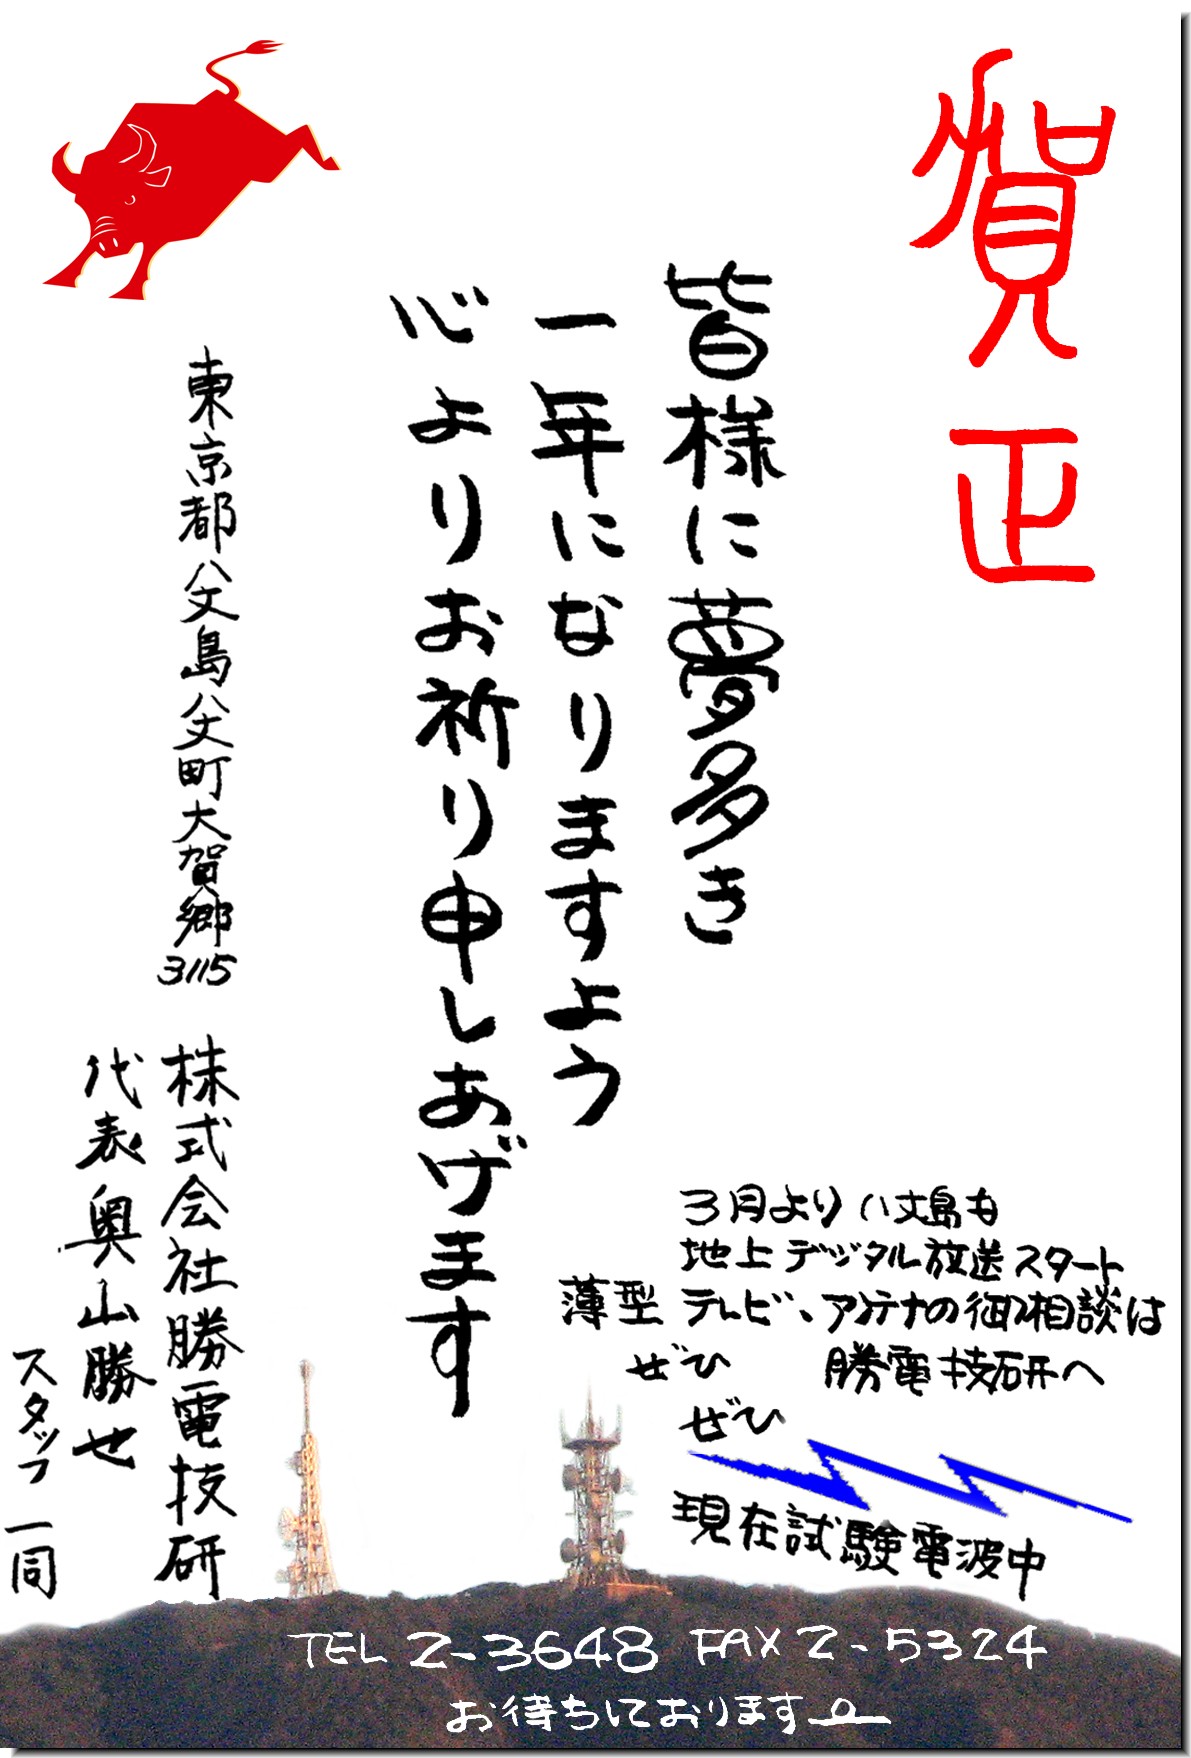 賀正
皆様に夢多き
一年になりますよう
心よりお祈り申しあげます
東京都八丈島八丈町大賀郷3115
株式会社勝電技研
代表 奥山勝也
スタッフ一同
3月より八丈島も
地上デジタル放送スタート
薄型テレビ、アンテナの御相談は
ぜひ 勝電技研へ
ぜひ
現在試験電波中
TEL 2-3648 FAX 2-5324
お待ちしております